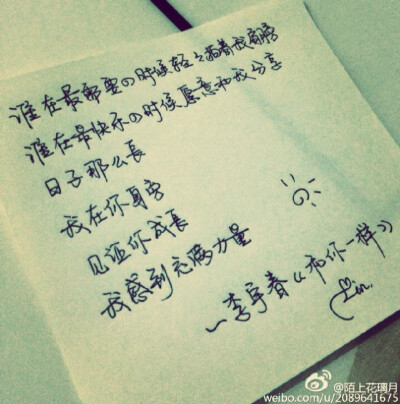 谁在最需要の时候轻轻拍着我肩旁
谁在最快乐の时候愿意和我分享
日子那么長
我在你身旁
见证你成長
我感到充满力量
—李宇春《和你一样》
Lin.
@陌上花璃月
weibo.com/u/2089641675